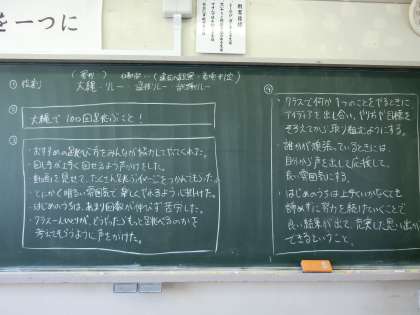 を一つに
① 役割
大縄・リレー
②
大縄で100回を跳ぶこと!
③
・おすすめの跳び方をみんなが協力してやってくれた。
・回し手が上手く回せるよう声かけをした。
・動画を見せて、たくさん跳ぶイメージをつかんでもらった。
・とにかく明るい雰囲気で楽しくやれるように
・はじめのうちは、あまり回数が伸びず苦労した。
・クラス一人ひとりが、どうやったらもっと跳べるのかを
考えてもらうように声をかけた。
④
・クラスで何か1つのことをやるときに
アイディアを出し合い、やり方や目標を
そろえてから取り組むようにする。
・誰かが頑張っているときには、
自分から声を出して応援して、
良い雰囲気にする。
・はじめのうちは上手くいかなくても
諦めずに努力を続けていくことで
良い結果が出て、充実した思い出が
できるということ。